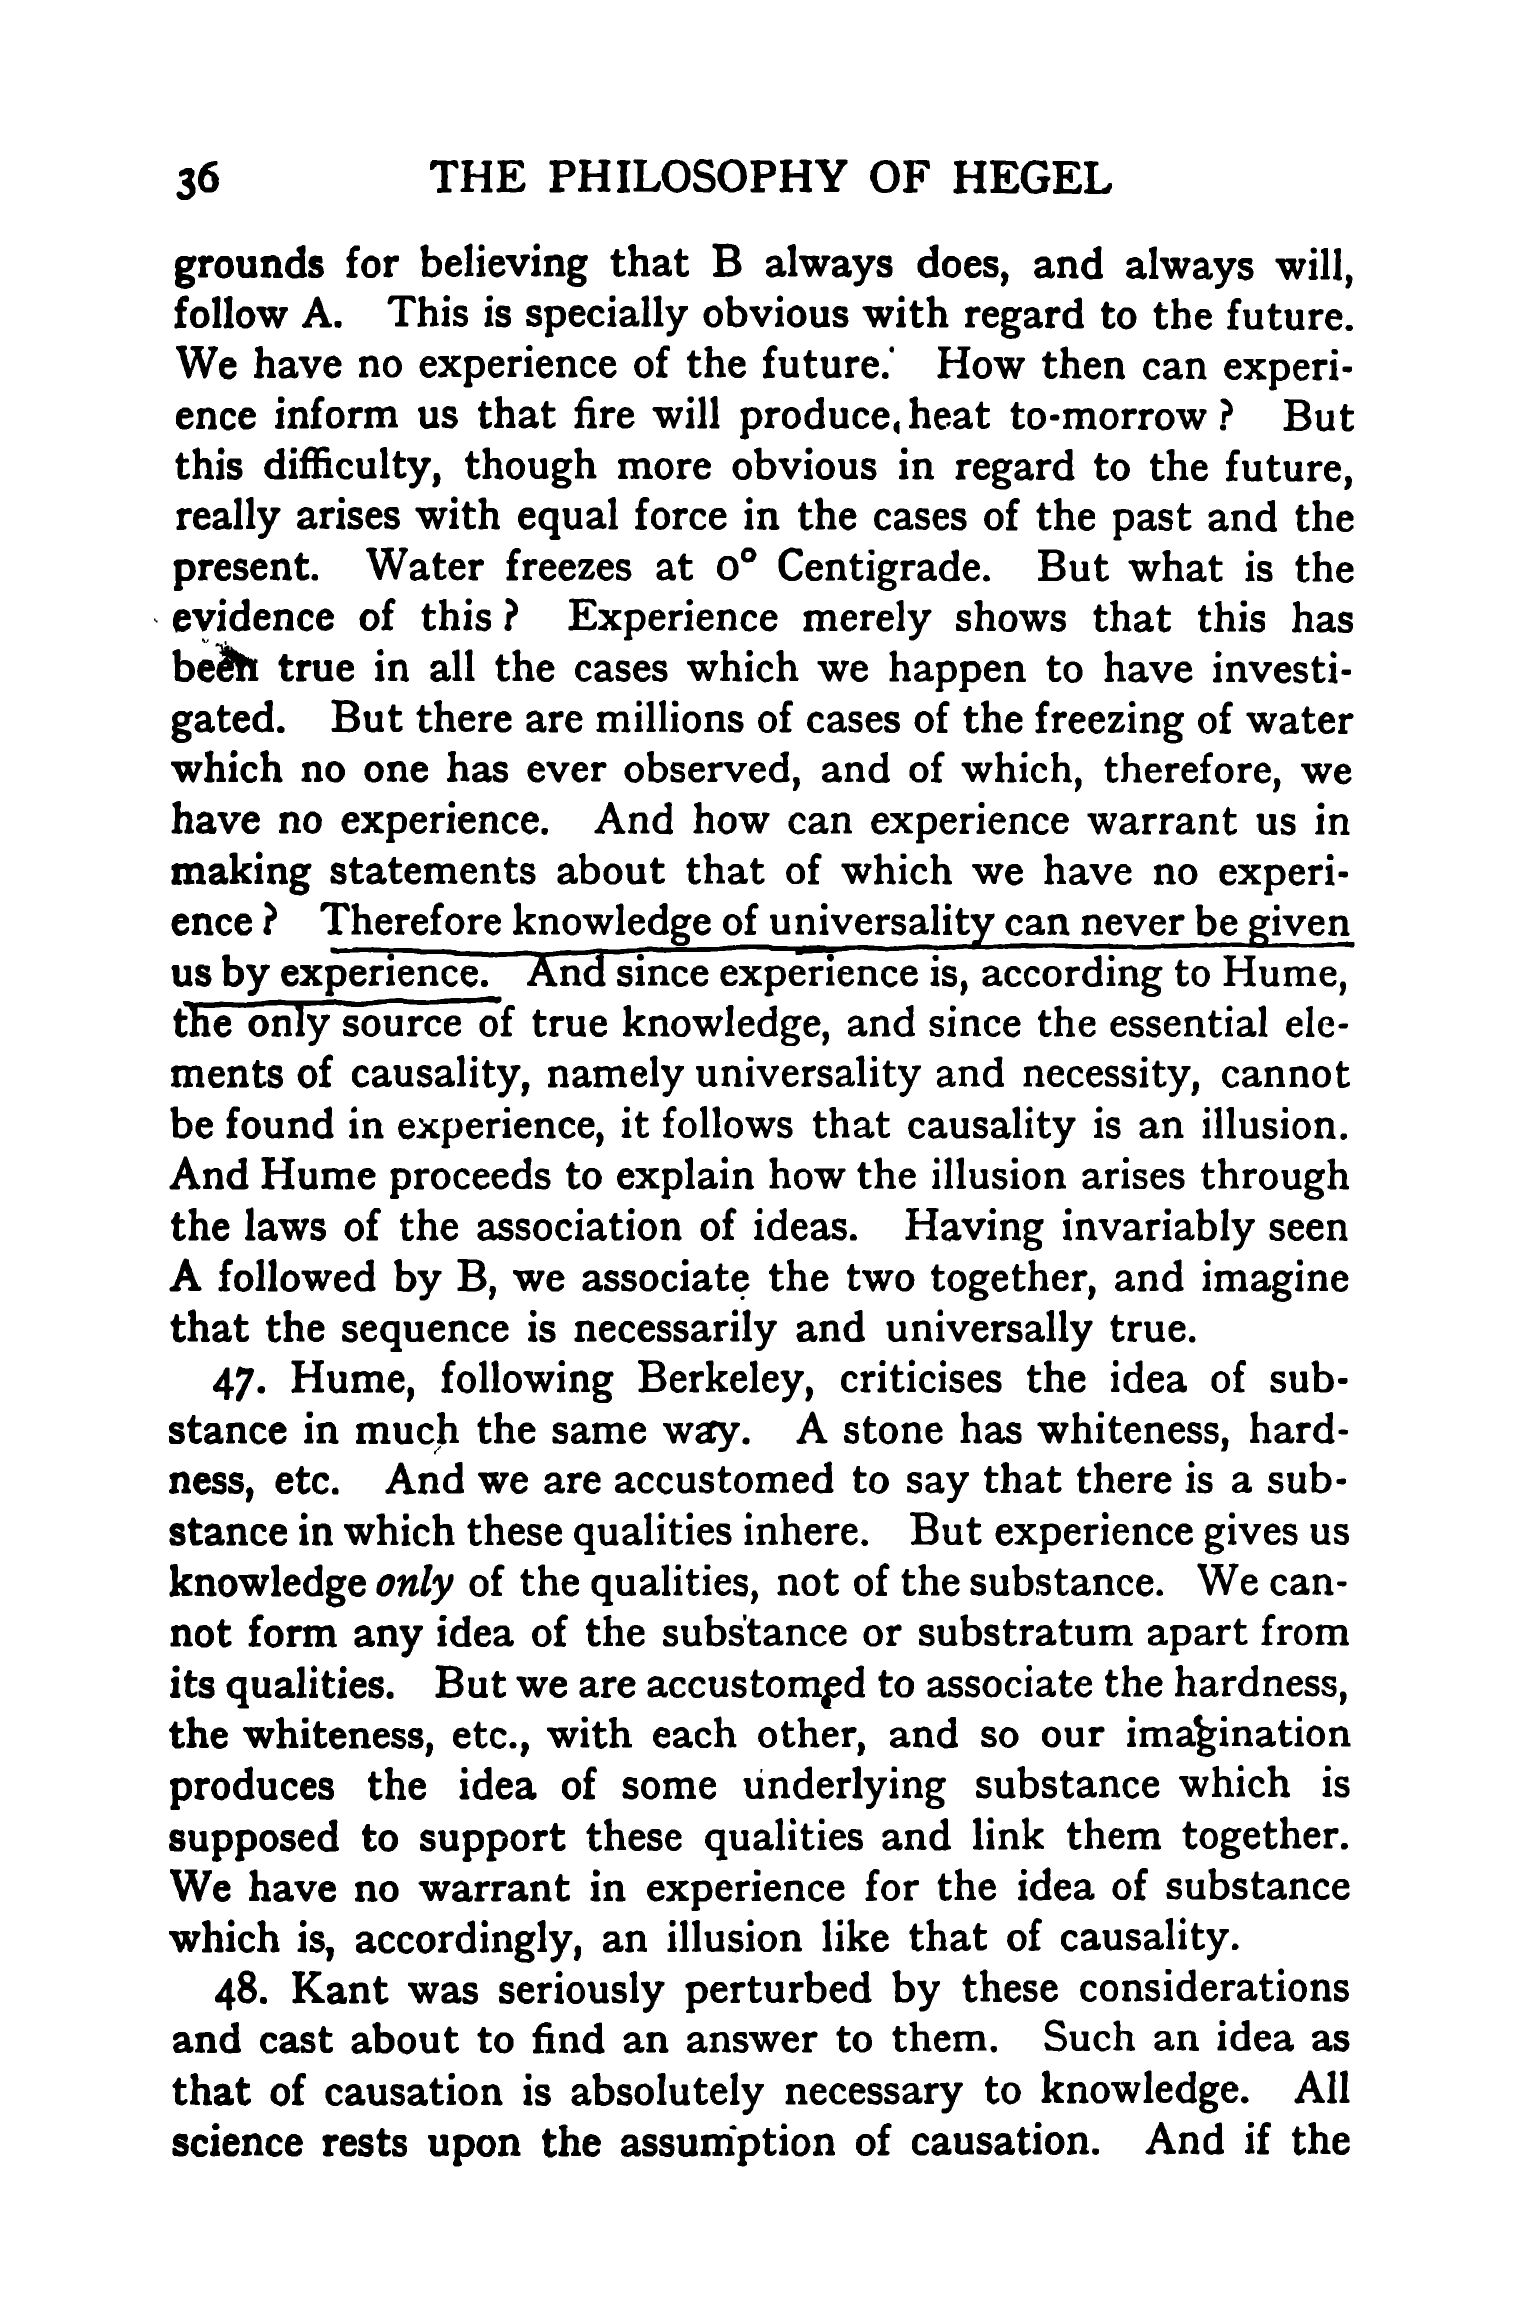 36 THE PHILOSOPHY OF HEGEL
grounds for believing that B always does, and always will,
follow A. This is specially obvious with regard to the future.
We have no experience of the future. How then can experi-
ence inform us that fire will produce heat to-morrow ? But
this difficulty, though more obvious in regard to the future,
really arises with equal force in the cases of the past and the
present. Water freezes at 0° Centigrade. But what is the
evidence of this ? Experience merely shows that this has
been true in all the cases which we happen to have investi-
gated. But there are millions of cases of the freezing of water
which no one has ever observed, and of which, therefore, we
have no experience. And how can experience warrant us in
making statements about that of which we have no experi-
ence ? Therefore knowledge of universality can never be given
us by experience. And since experience is, according to Hume,
the only source of true knowledge, and since the essential ele-
ments of causality, namely universality and necessity, cannot
be found in experience, it follows that causality is an illusion.
And Hume proceeds to explain how the illusion arises through
the laws of the association of ideas. Having invariably seen
A followed by B, we associate the two together, and imagine
that the sequence is necessarily and universally true.
47. Hume, following Berkeley, criticises the idea of sub-
stance in much the same way. A stone has whiteness, hard-
ness, etc. And we are accustomed to say that there is a sub-
stance in which these qualities inhere. But experience gives us
knowledge only of the qualities, not of the substance. We can-
not form any idea of the substance or substratum apart from
its qualities. But we are accustomed to associate the hardness,
the whiteness, etc., with each other, and so our imagination
produces the idea of some underlying substance which is
supposed to support these qualities and link them together.
We have no warrant in experience for the idea of substance
which is, accordingly, an illusion like that of causality.
48. Kant was seriously perturbed by these considerations
and cast about to find an answer to them. Such an idea as
that of causation is absolutely necessary to knowledge. All
science rests upon the assumption of causation. And if the